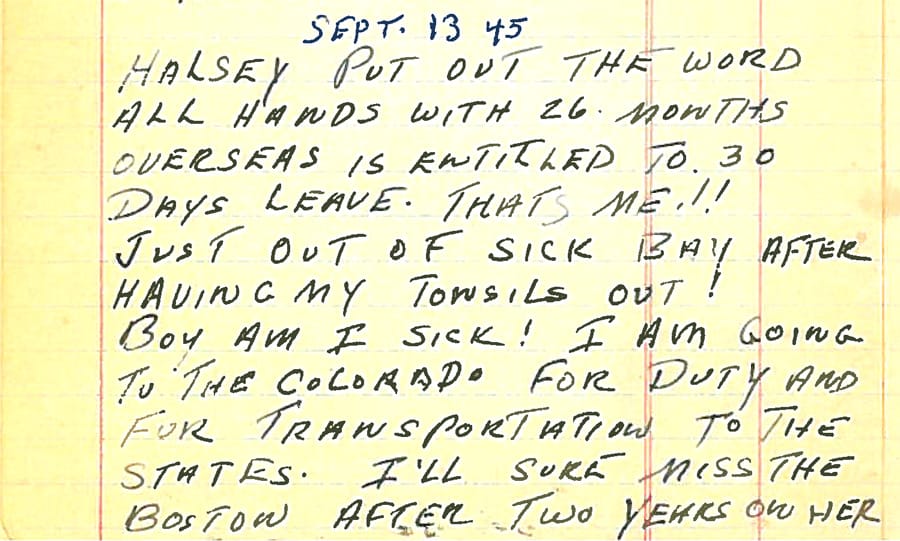 SEPT. 13 45
HALSEY PUT OUT THE WORD
ALL HANDS WITH 26. MONTHS
OVERSEAS IS ENTITLED TO. 30
DAYS LEAVE. THATS ME.!!
JUST OUT OF SICK BAY AFTER
HAVING MY TONSILS OUT!
BOY AM I SICK! I AM GOING
TO THE COLORADO FOR DUTY AND
FOR TRANSPORTATION TO THE
STATES. I'LL SURE MISS THE
BOSTON AFTER TWO YEARS ON HER